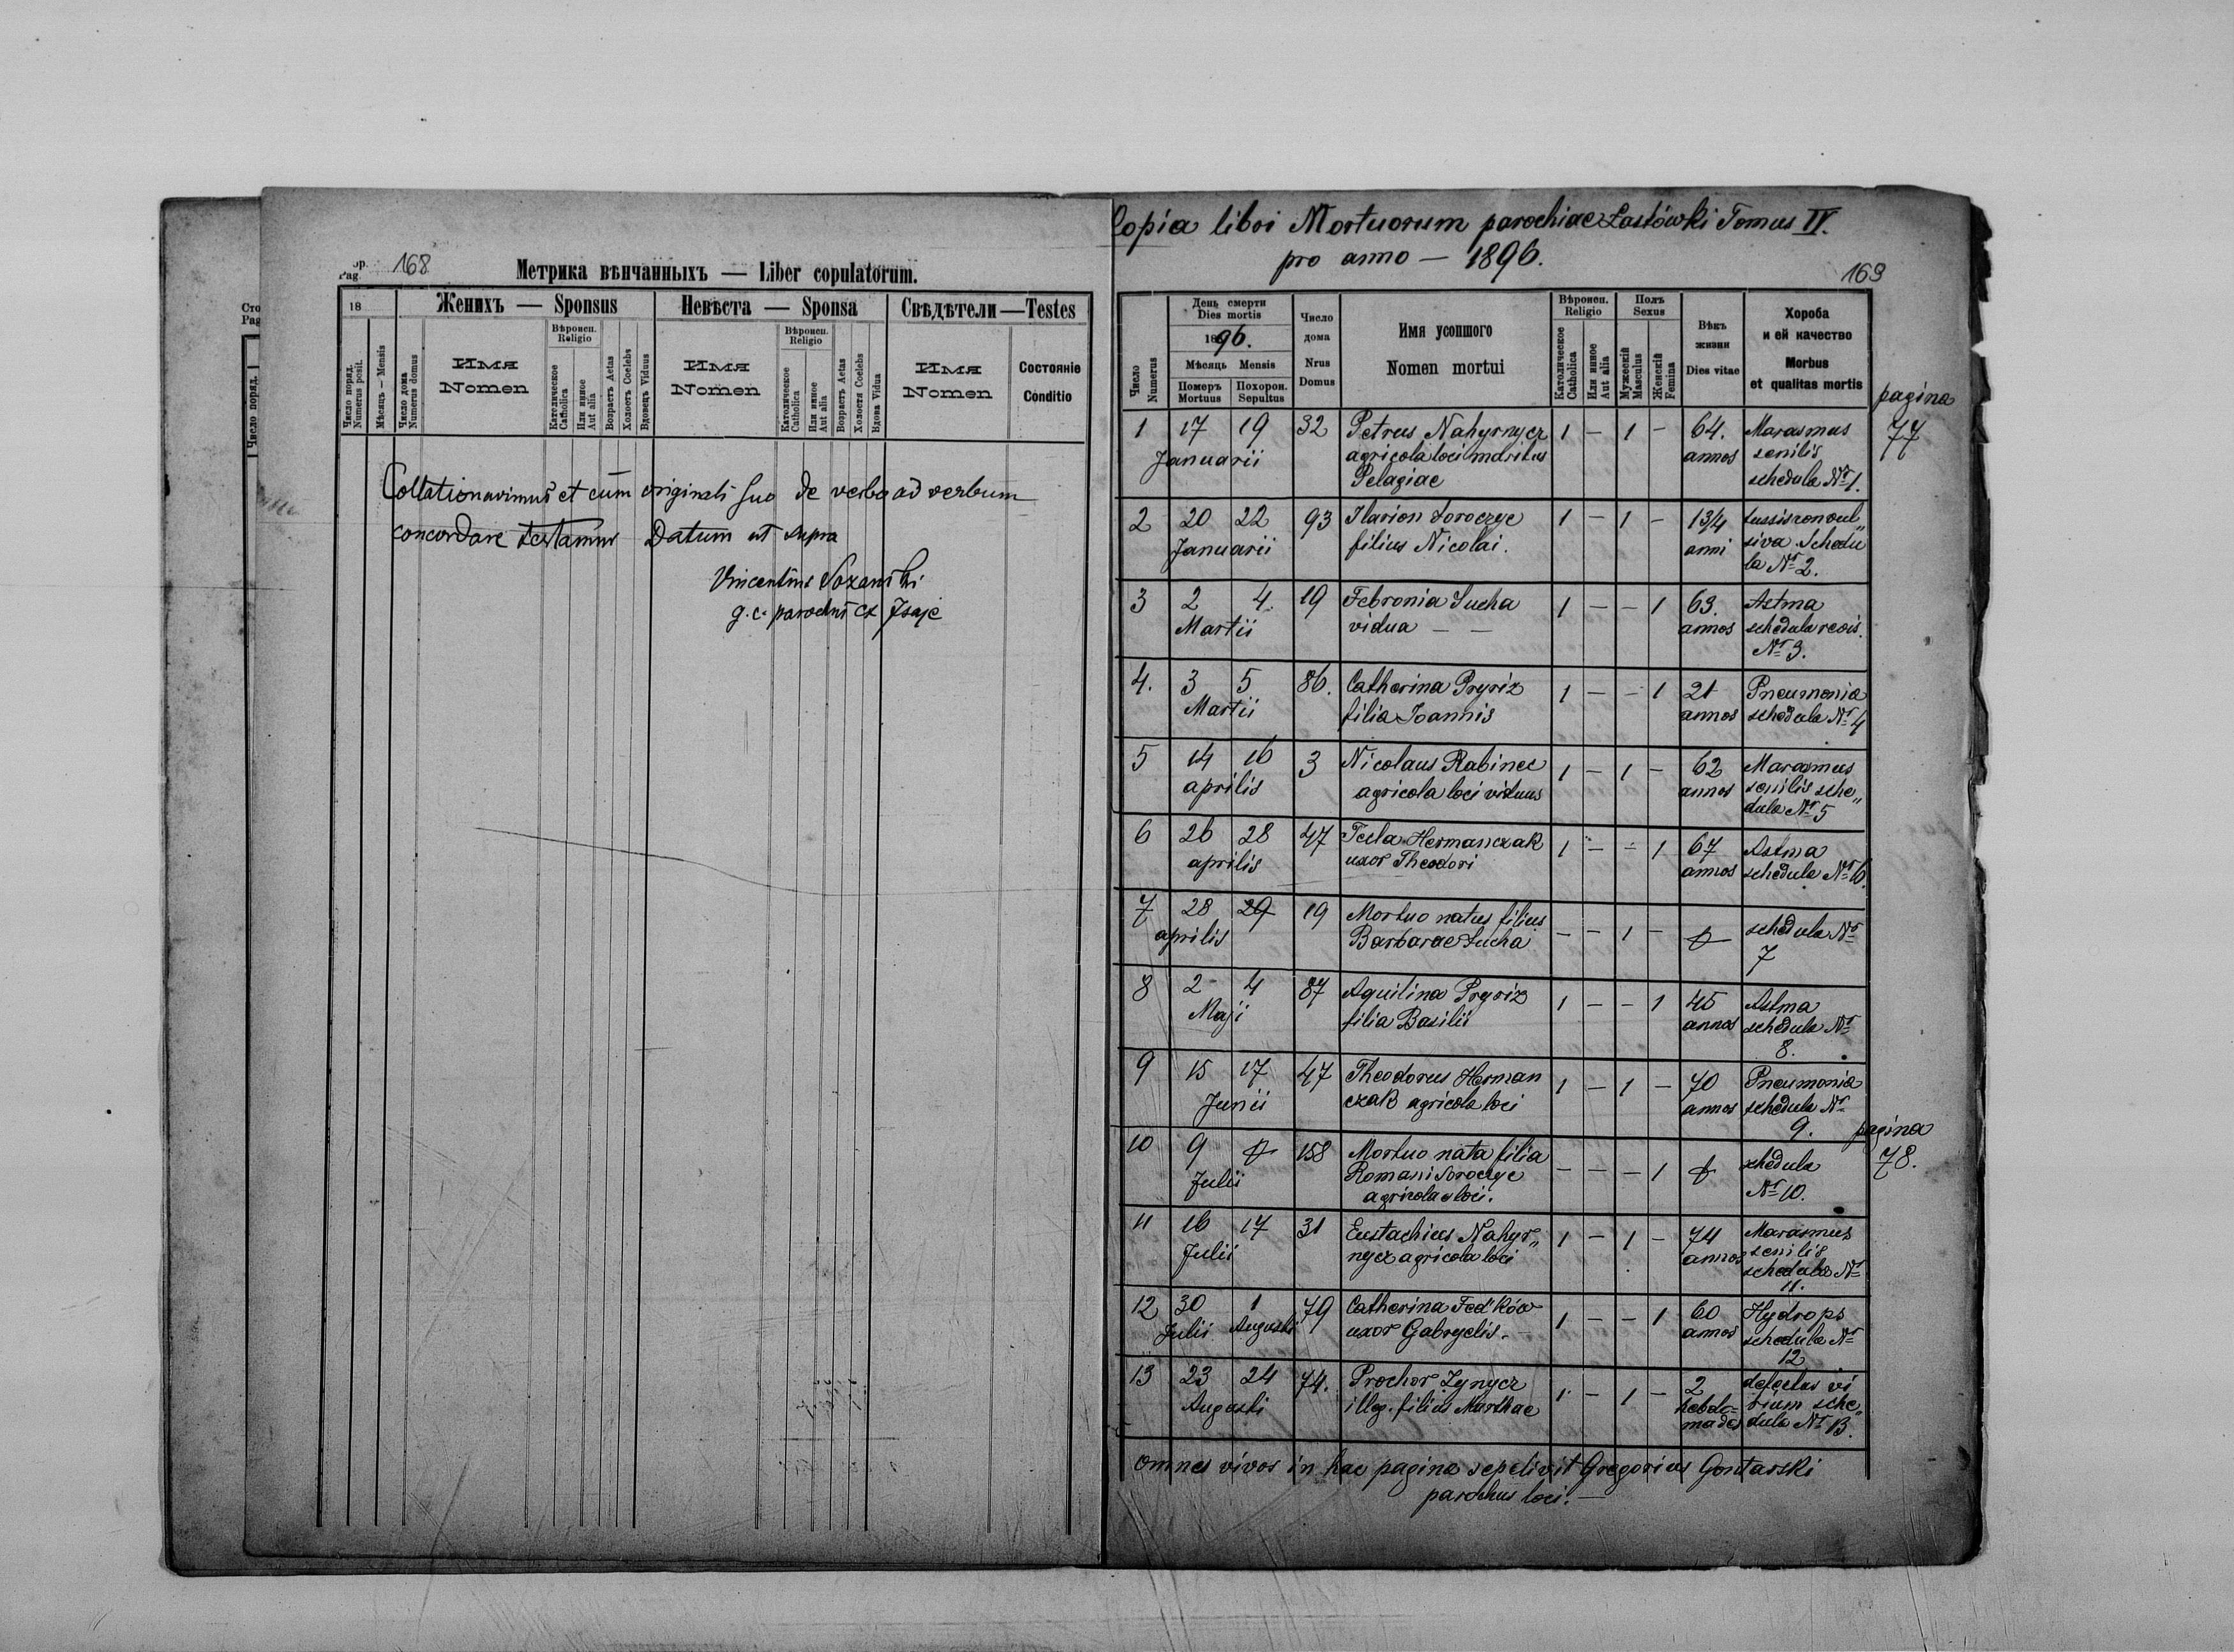 Сто
Pag
Число поряд.
ор.
Pag.
168
Метрика вѣнчанныхъ — Liber copulatorum.
18
Женихъ — Sponsus
Невѣста — Sponsa
Свѣдѣтели — Testes
Число поряд.
Numerus posit.
Мѣсяцъ — Mensis
Число дома
Numerus domus
Имя
Nomen
Вѣроисп.
Religio
Католическое
Catholica
Или инное
Aut alia
Возрастъ Aetas
Холостъ Coelebs
Вдовецъ Viduus
Имя
Nomen
Вѣроисп.
Religio
Католическое
Catholica
Или инное
Aut alia
Возрастъ Aetas
Холостя Coelebs
Вдова Vidua
Имя
Nomen
Состояніе
Conditio
Collationavimus et cum originali suo de verbo ad verbum
concordare testamur Datum ut supra
Vincentius Soxański
g. c. parochus ex Isaje
Copia libri Mortuorum parochiae Łastówki Tomus IV.
pro anno — 1896.
169
Число
Numerus
День смерти
Dies mortis
1896.
Мѣсяць Mensis
Померъ
Mortuus
Похорон.
Sepultus
Число
дома
Nrus
Domus
Имя усопшого
Nomen mortui
Вѣроисп.
Religio
Католическое
Catholica
Или инное
Aut alia
Полъ
Sexus
Мужескій
Masculus
Женскій
Femina
Вѣкъ
жизни
Dies vitae
Хороба
и ей качество
Morbus
et qualitas mortis
pagina
77
1 17 19 32 Petrus Nahyrnycz 1 — 1 — 64. Marasmus
Januarii agricola loci maritus annos senilis
Pelagiae schedula Nr 1.
2 20 22 93 Ilarion Soroczyc 1 — 1 — 1 3/4 tussis convul„
Januarii filius Nicolai. anni siva Schedu
la Nr 2.
3 2 4 19 Febronia Sucha 1 — — 1 63. Astma
Martii vidua — — annos schedula revis.
Nr 3.
4. 3 5 86. Catherina Pryriz 1 — — 1 21 Pneumonia
Martii filia Joannis annos schedula Nr 4
5 14 16 3 Nicolaus Rabinec 1 — 1 — 62 Marasmus
aprilis agricola loci viduus annos senilis sche„
dula Nr 5
6 26 28 47 Tecla Hermanczak 1 — — 1 67 Astma
aprilis uxor Theodori annos schedula Nr 6.
7 28 29 19 Mortuo natus filius — — 1 — schedula Nr
aprilis Barbarae Sucha 7
8 2 4 87 Aquilina Pryriz 1 — — 1 45 Astma
Maji filia Basilii annos schedula Nr
8.
9 15 17 47 Theodorus Herman 1 — 1 — 70 Pneumonia
Junii czak agricola loci annos schedula Nr
9.
pagina
78.
10 9 158 Mortuo nata filia — — — 1 schedula
Julii Romani Soroczyc Nr 10.
agricolae loci.
11 16 17 31 Eustachius Nahyr„ 1 — 1 — 74 Marasmus
Julii nycz agricola loci annos senilis
schedula Nr
11.
12 30 1 79 Catherina Fed'ków 1 — — 1 60 Hydrops
Julii Augusti uxor Gabryelis. — annos schedula Nr
12
13 23 24 74. Prochor Zynycz 1 — 1 — 2 defectus vi
Augusti illeg. filius Marthae hebdo= rium sche„
mades dula Nr 13.
omnes vivos in hac pagina sepelivit Gregorius Gontarski
parochus loci. —